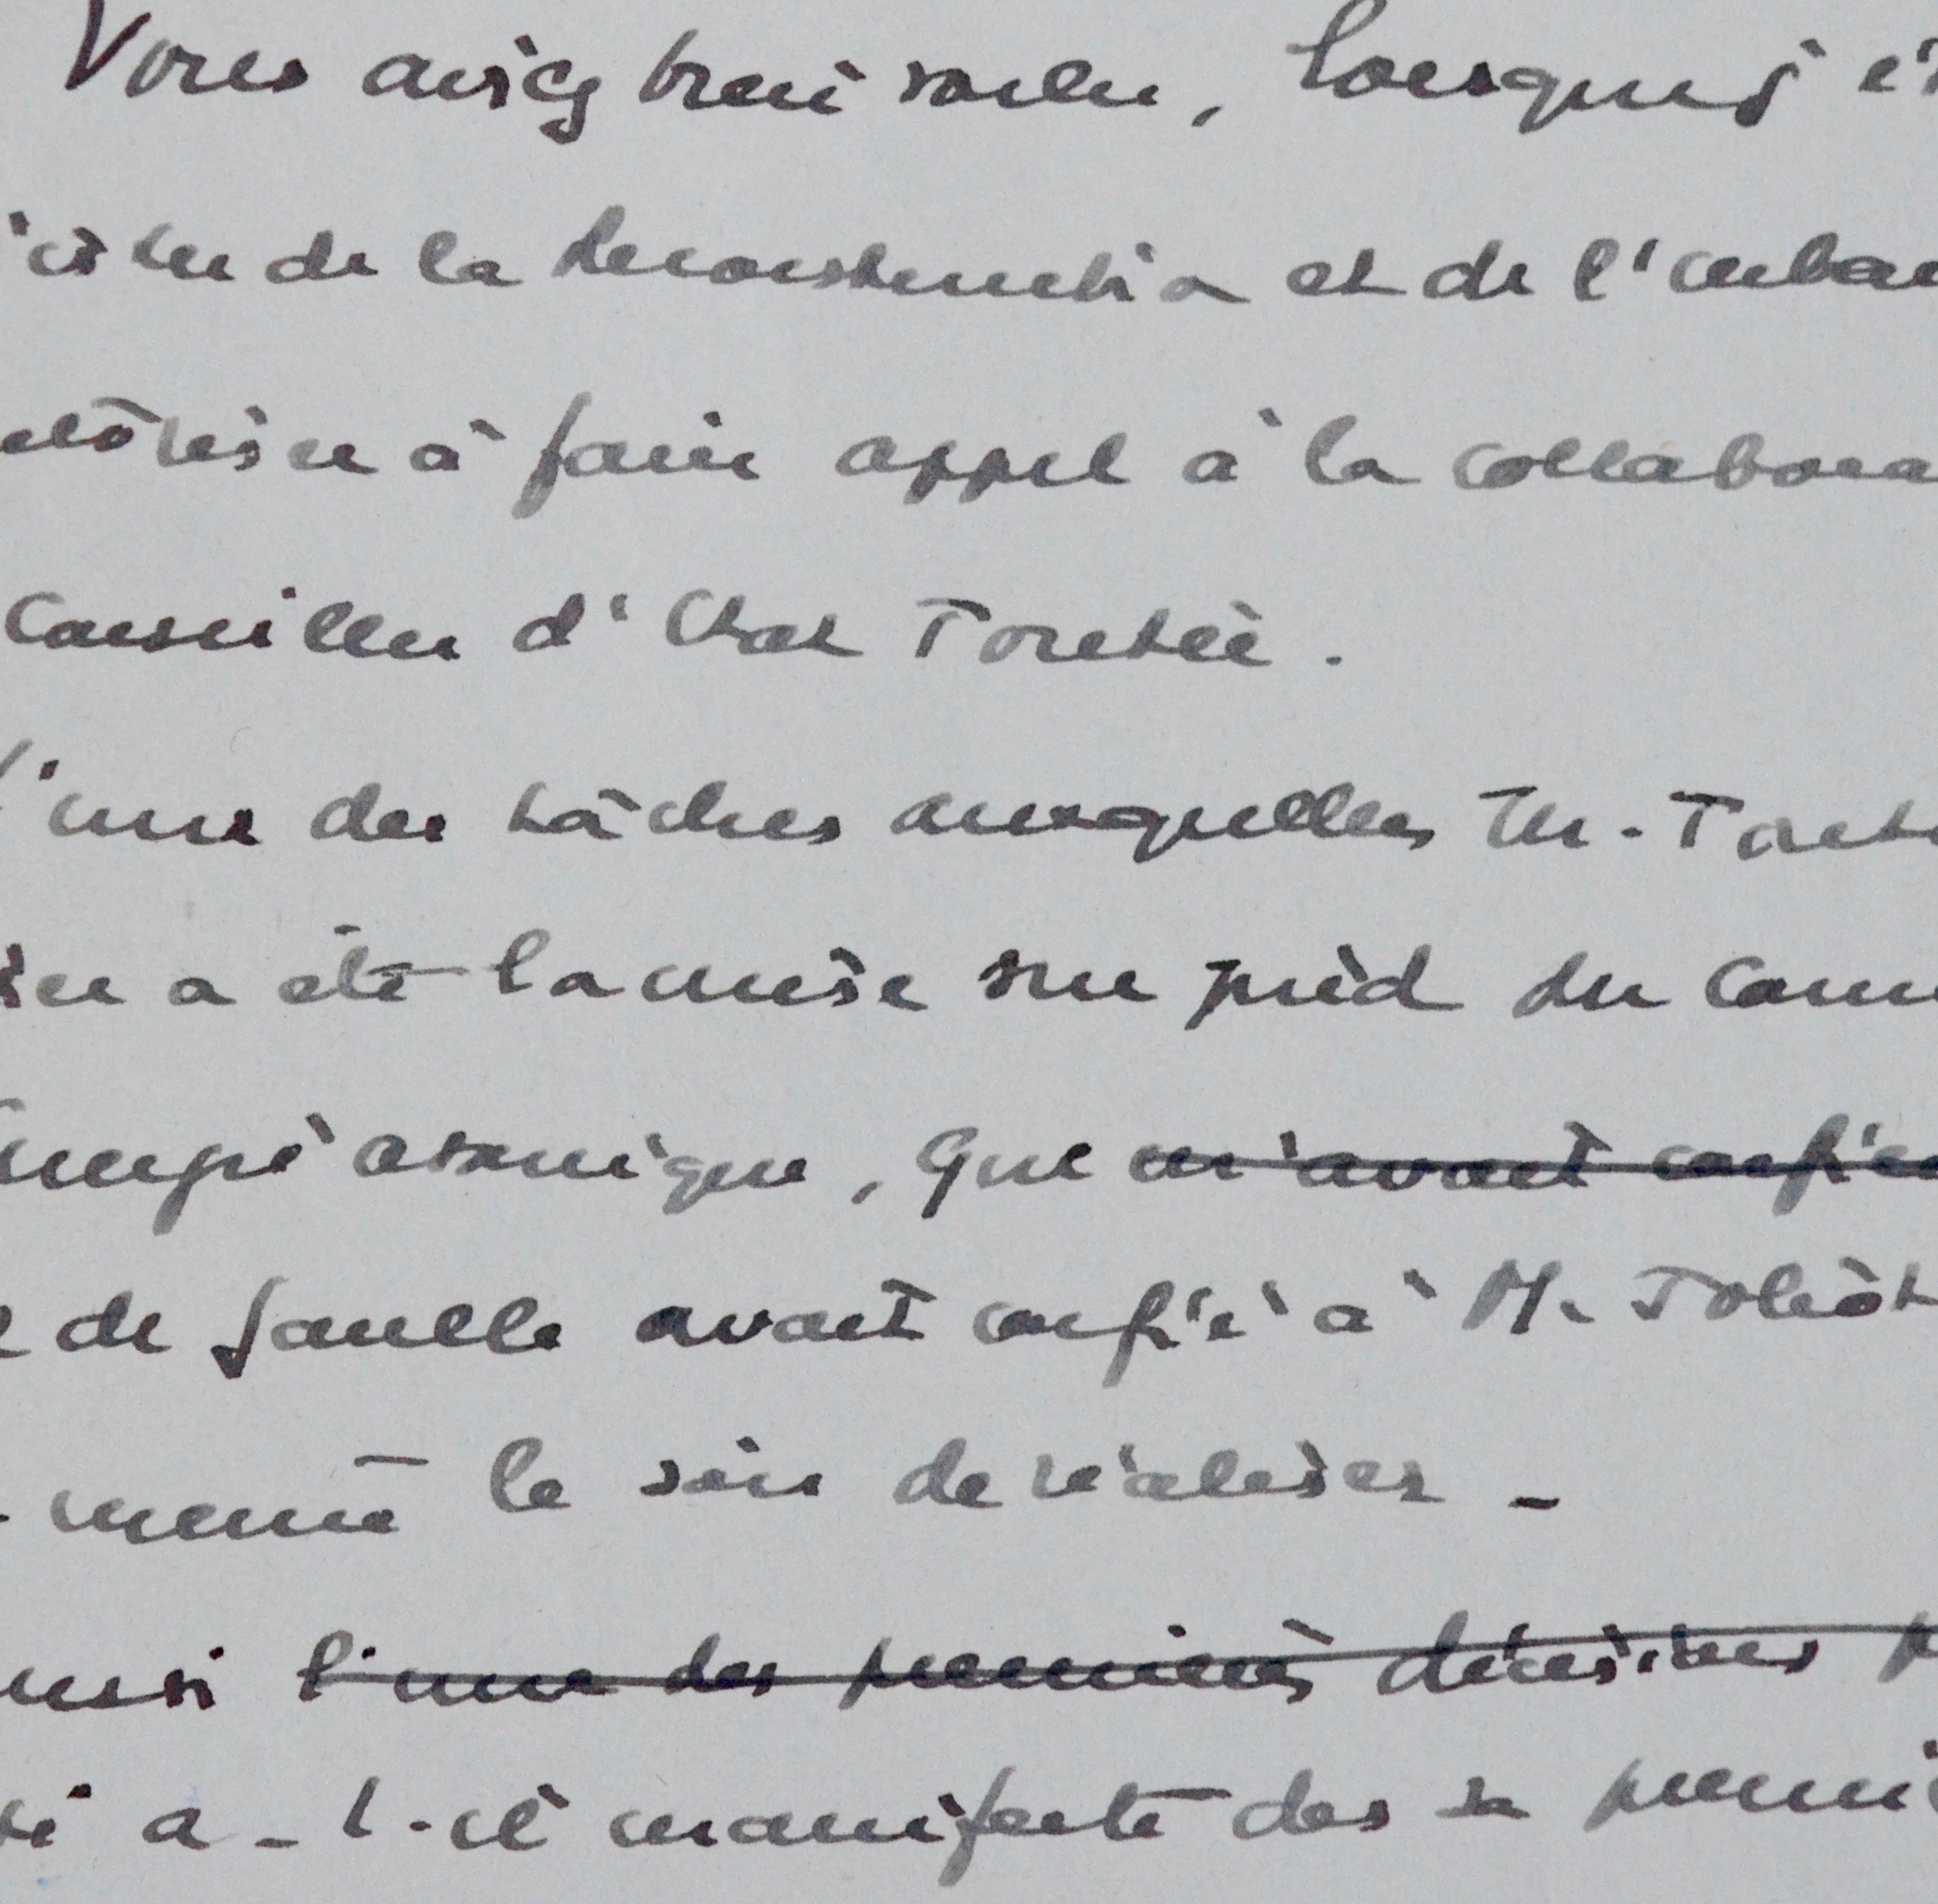 Vous aviez bien voulu, lorsque j'ét
istre de la Reconstruction et de l'urban
utoriser à faire appel à la collabora
Conseiller d'Etat Toutée.
l'une des tâches auxquelles M. Touté
a été la mise sur pied du Comm
énergie atomique, que m'avait confié
de Gaulle avait confié à M. Joliot
même le soin de réaliser.
ussi l'une des premières décisions p
si a-t-il manifesté dès sa premiè